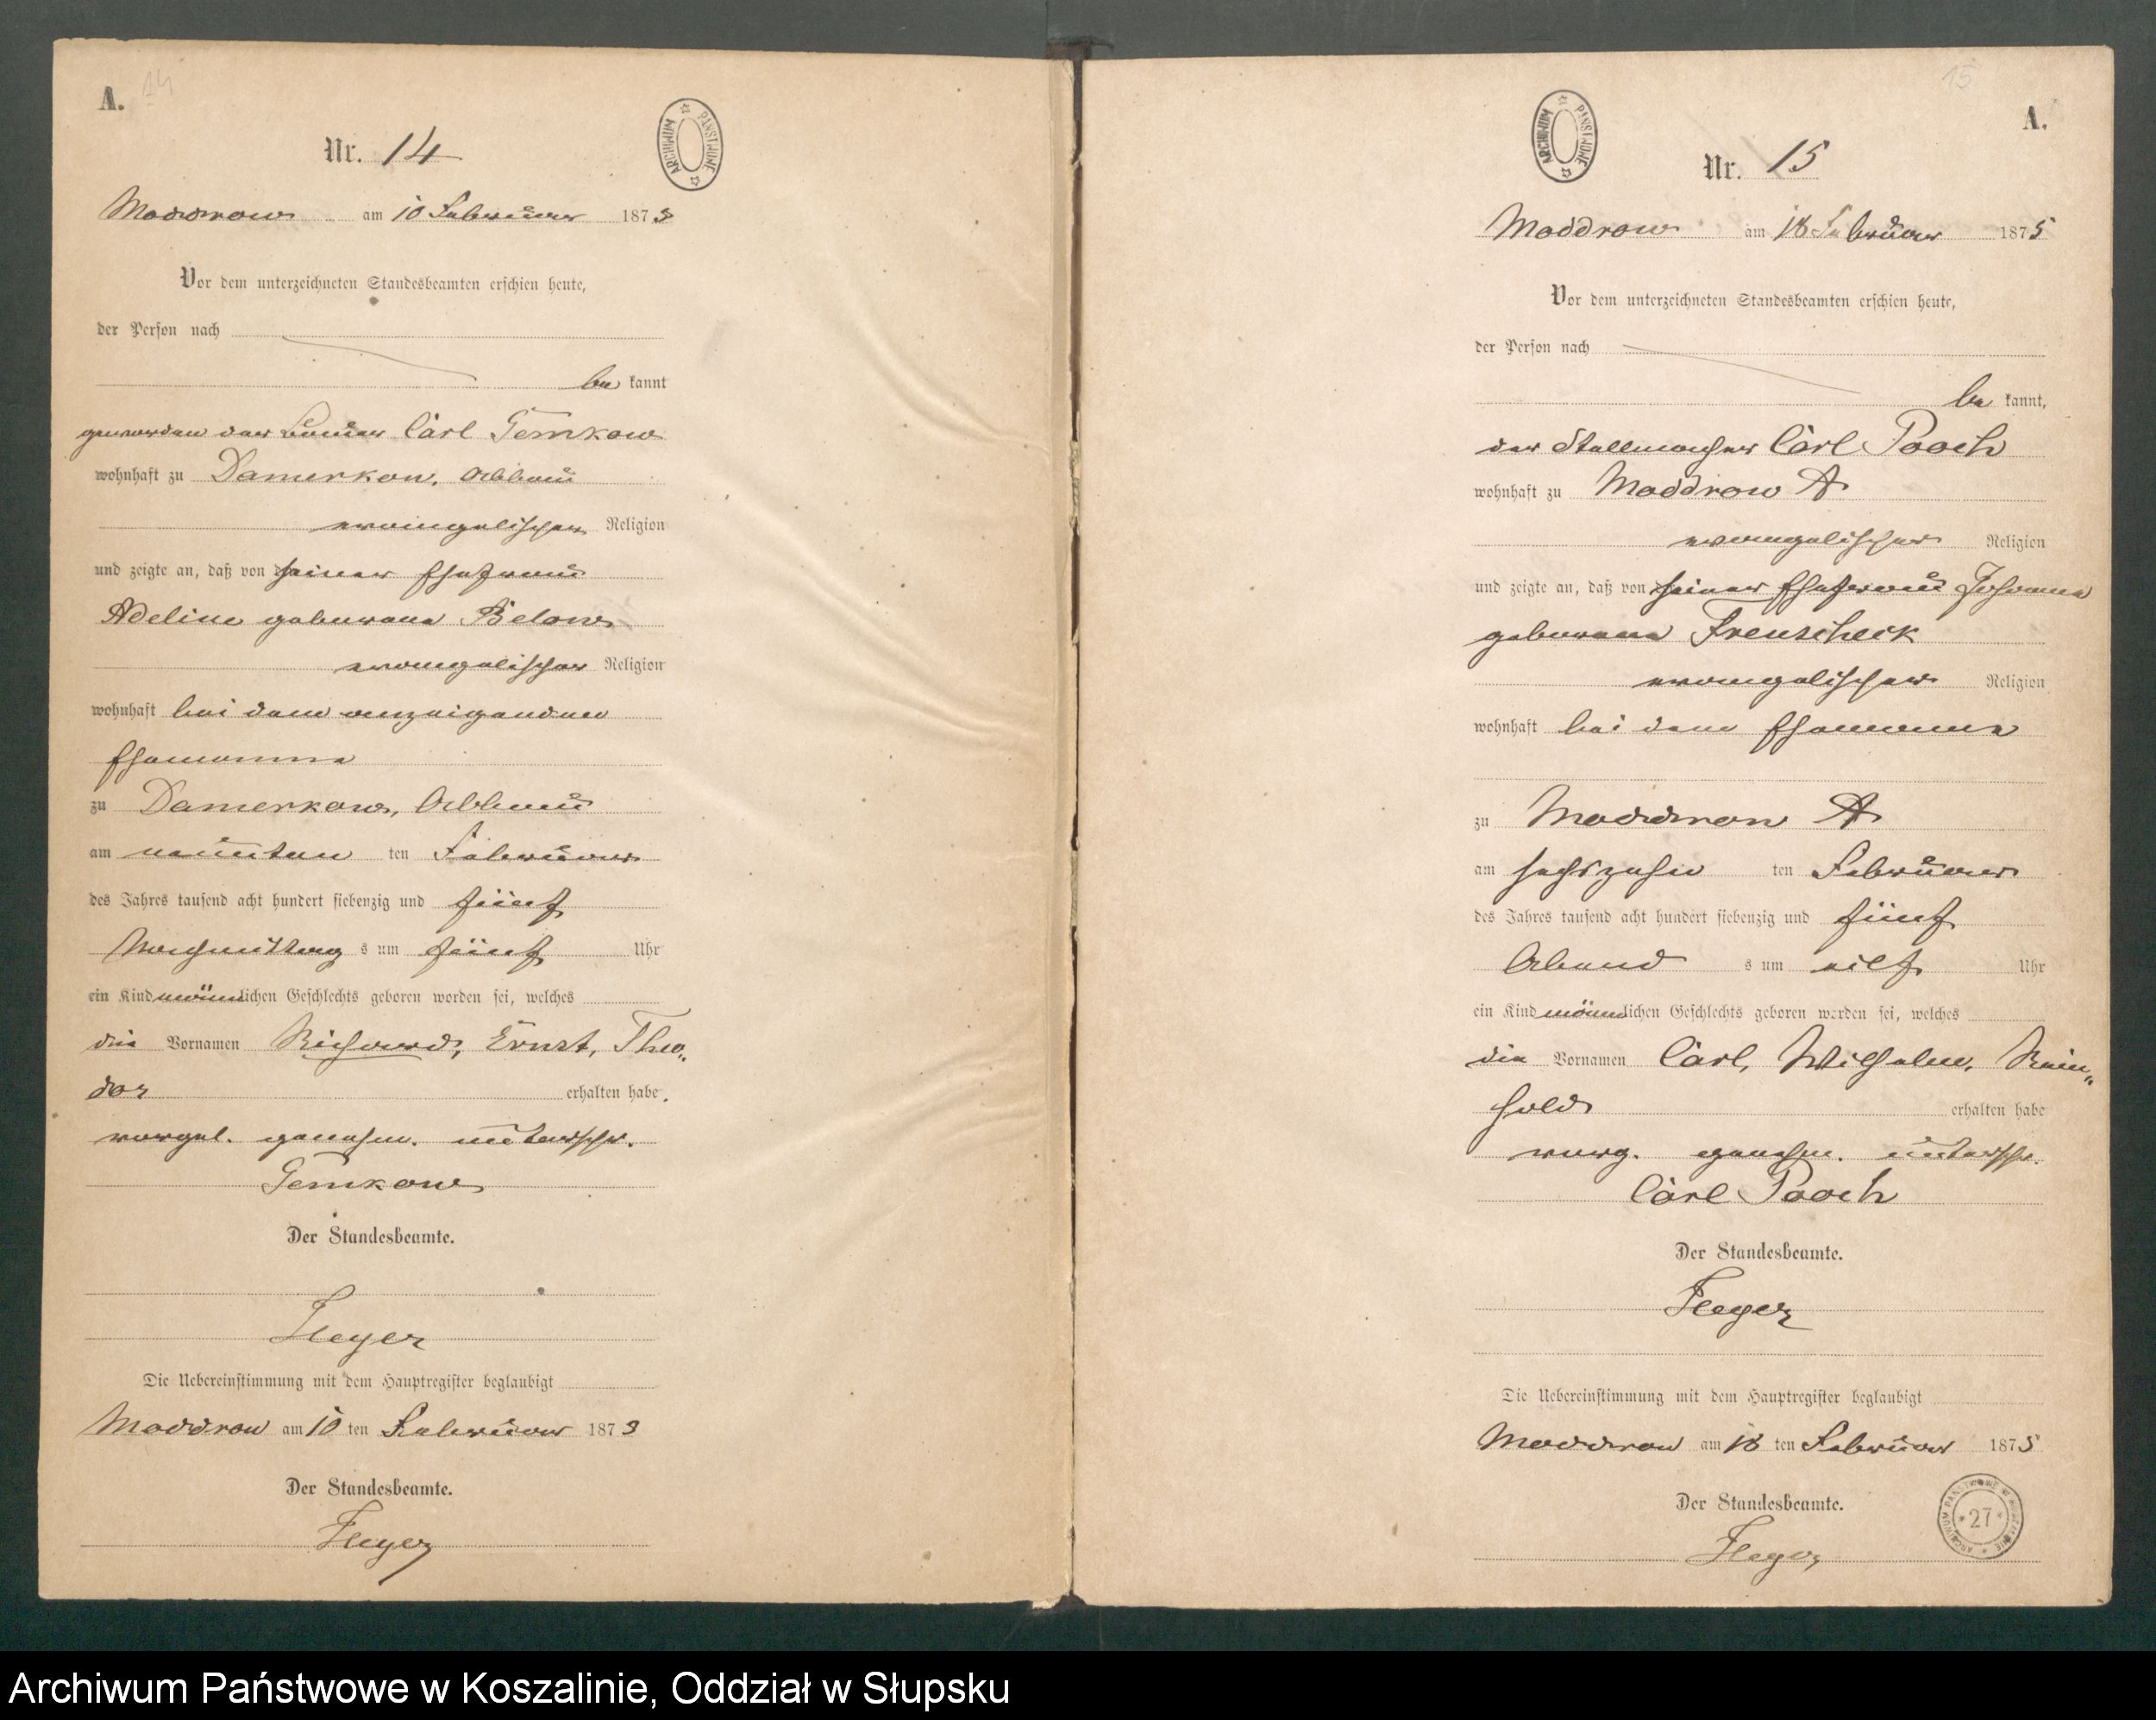 A. 14
Nr. 14
ARCHIWUM PAŃSTWOWE
Moddrow am 10 Februar 1875
Vor dem unterzeichneten Standesbeamten erschien heute,
der Person nach
be kannt
geworden der Carl Temkow
wohnhaft zu Damerkow, Abbau
evangelischer Religion
und zeigte an, daß von seiner Ehefrau
Adeline geborene Below
evangelischer Religion
wohnhaft bei dem anzeigenden
Ehemanne
zu Damerkow, Abbau
am neunten ten Februar
des Jahres tausend acht hundert siebenzig und fünf
Nachmittag s um fünf Uhr
ein Kind männlichen Geschlechts geboren worden sei, welches
die Vornamen Richard, Ernst, Theo„
dor erhalten habe.
vorgel. genehm. unterschr.
Temkow
Der Standesbeamte.
Die Uebereinstimmung mit dem Hauptregister beglaubigt
Moddrow am 10 ten Februar 1875
Der Standesbeamte.
15
A.
ARCHIWUM PAŃSTWOWE
Nr. 15
Moddrow am 18 Februar 1875
Vor dem unterzeichneten Standesbeamten erschien heute,
der Person nach
be kannt,
der Stellmacher Carl Pooch
wohnhaft zu Moddrow A
evangelischer Religion
und zeigte an, daß von seiner Ehefrau Johanna
geborene
evangelischer Religion
wohnhaft bei dem Ehemanne
zu Moddrow A
am sechszehn ten Februar
des Jahres tausend acht hundert siebenzig und fünf
Abend s um eilf Uhr
ein Kind männlichen Geschlechts geboren worden sei, welches
die Vornamen Carl, Wilhelm, Rein„
hold erhalten habe
vorg. genehm. unterschr.
Carl Pooch
Der Standesbeamte.
Die Uebereinstimmung mit dem Hauptregister beglaubigt
Moddrow am 18 ten Februar 1875
Der Standesbeamte.
27
Archiwum Państwowe w Koszalinie, Oddział w Słupsku